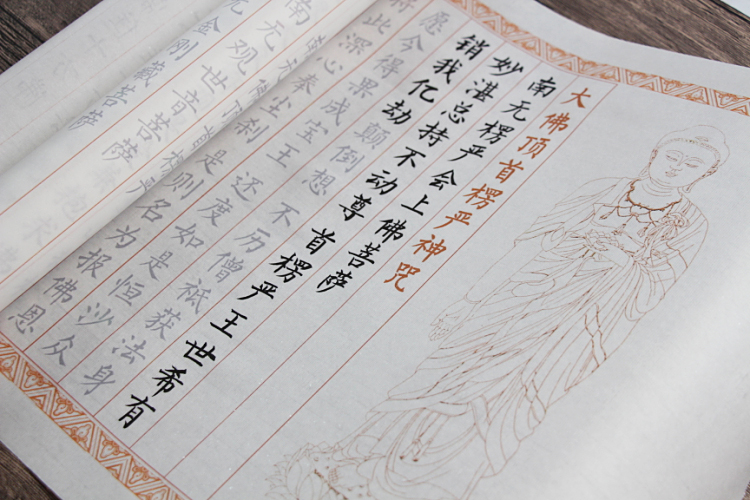 大佛顶首楞严神咒
南无楞严会上佛菩萨
妙湛总持不动尊 首楞严王世希有
销我亿劫颠倒想 不历僧祇获法身
愿今得果成宝王 还度如是恒沙众
将此深心奉尘刹 是则名为报佛恩
南无
无观世音菩萨
无金刚藏菩萨